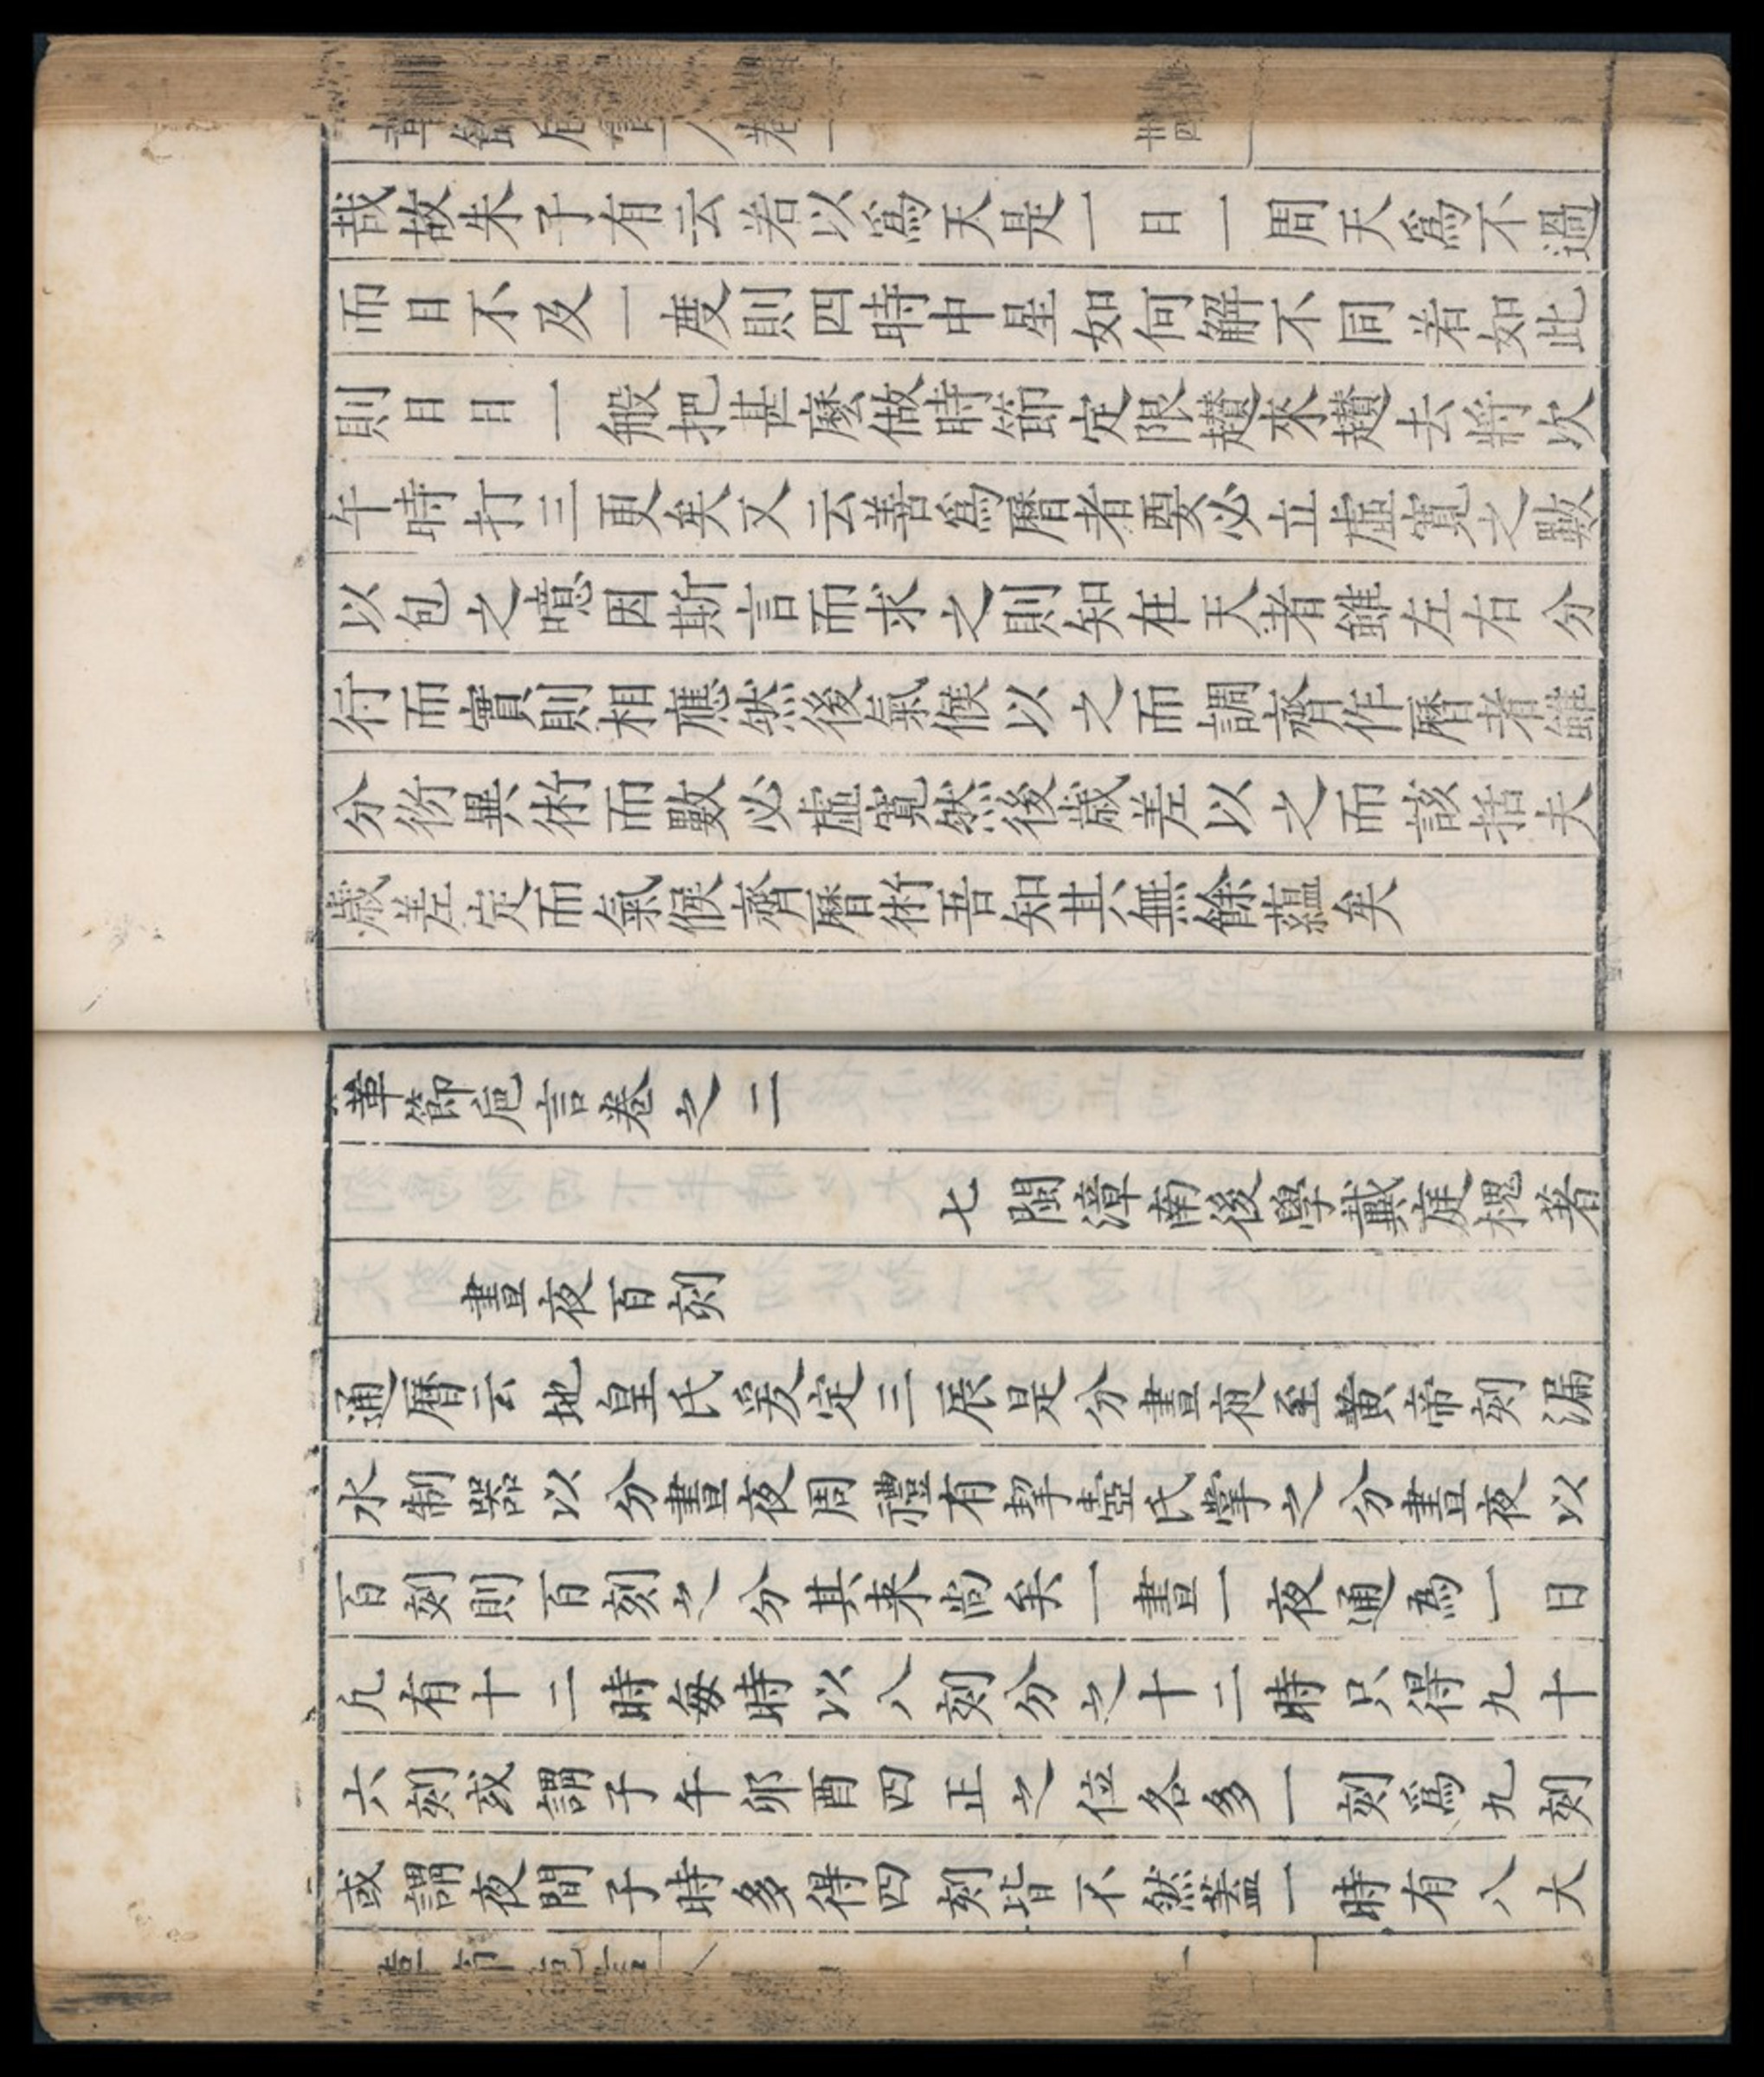 哉故朱子有云若以爲天是一日一周天爲不過
而日不及一度則四時中星如何解不同若如此
則日日一般把甚麽做時節定限趲來趲去將次
午時打三更矣又云善爲曆者要必立虛寬之數
以包之噫因斯言而求之則知在天者雖左右分
行而實則相應然後氣候以之而調齊作曆者雖
分術異術而數必虛寬然後歲差以之而該括夫
歲差定而氣候齊曆術吾知其無餘蘊矣
革節巵言卷之二
七閩漳南後學戴庭槐著
晝夜百刻
通曆云地皇氏爰定三辰是分晝夜至黃帝刻漏
水制器以分晝夜周禮有挈壺氏掌之分晝夜以
百刻則百刻之分其来尚矣一晝一夜通為一日
凢有十二時每時以八刻分之十二時只得九十
六刻或謂子午卯酉四正之位各多一刻爲九刻
或謂夜間子時多得四刻皆不然蓋一時有八大